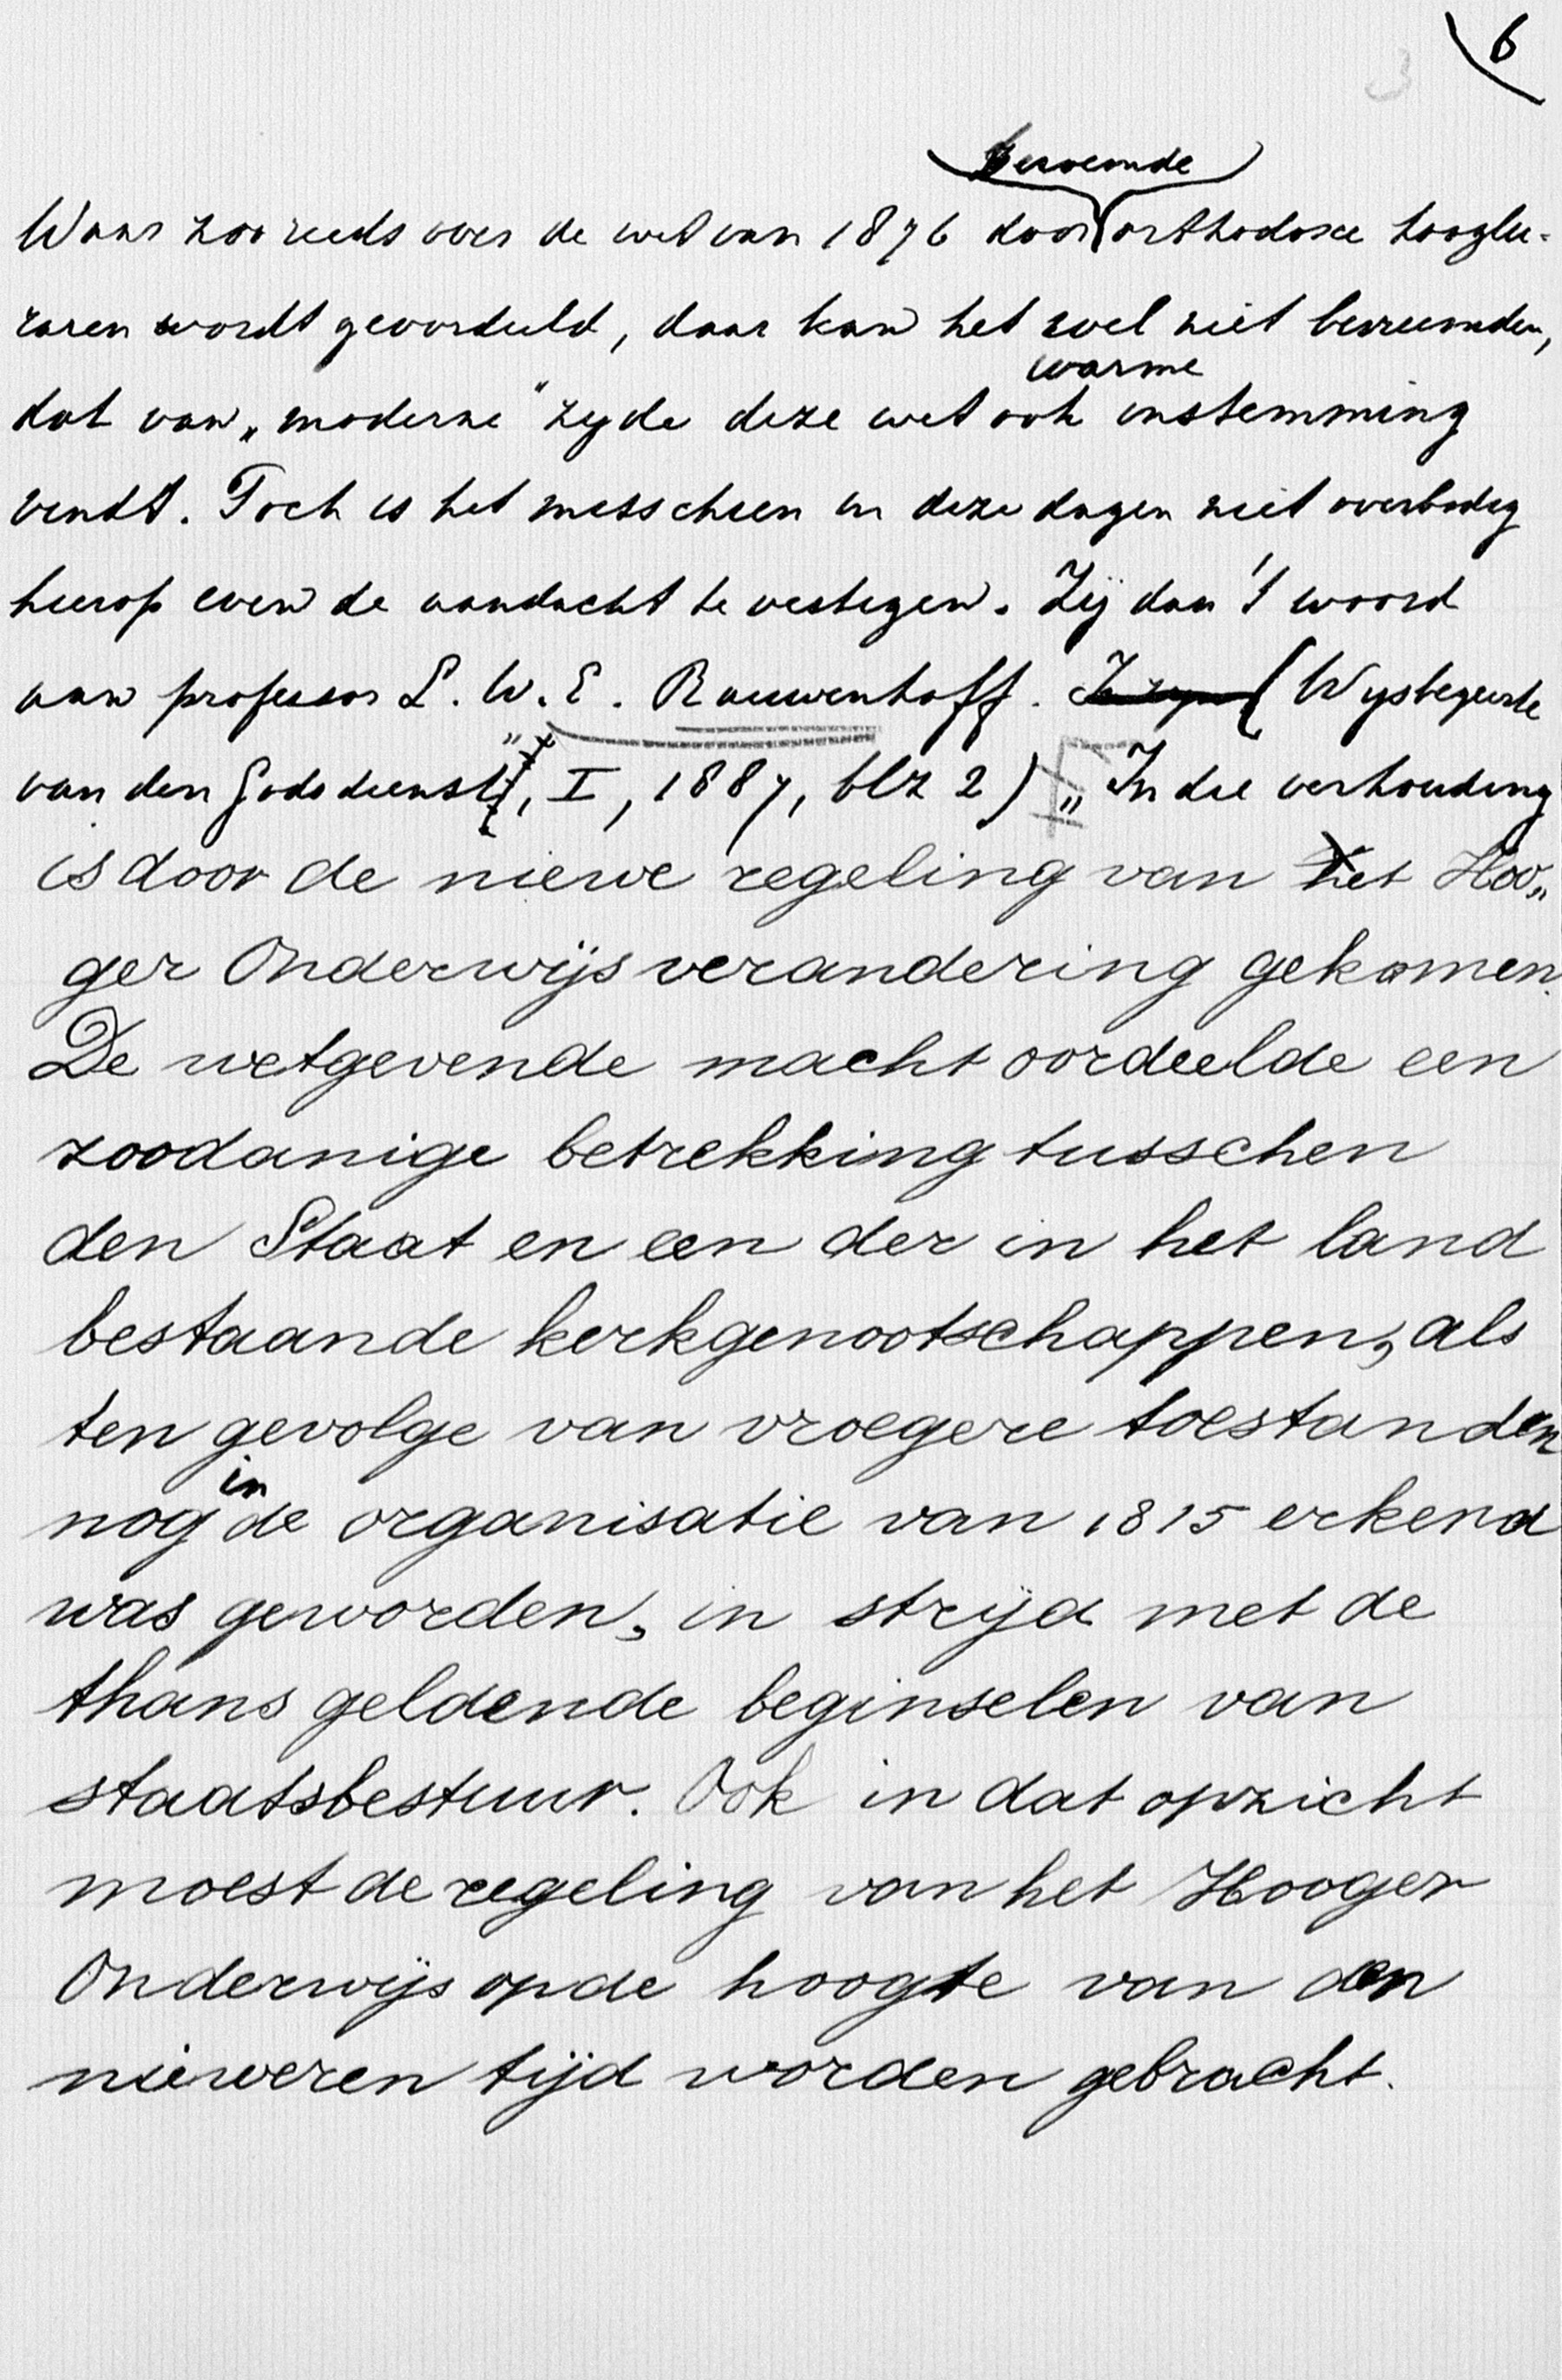 6
3
beroemde
Waar zoo reeds over de wet van 1876 door orthodoxe hooglee-
raren wordt geoordeeld, daar kan het wel niet bevreemden,
warme
dat van „moderne" zijde deze wet ook instemming
vindt. Toch is het misschien in deze dagen niet overbodig
hierop even de aandacht te vestigen. Zij dan 't woord
aan professor L. W. E. Rauwenhoff. (Wijsbegeerte
van den Godsdienst", I, 1887, blz 2) „In die verhouding
is door de niewe regeling van het Hoo„
ger Onderwijs verandering gekomen.
De wetgevende macht oordeelde een
zoodanige betrekking tusschen
den Staat en een der in het land
bestaande kerkgenootschappen, als
ten gevolge van vroegere toestanden
in
nog de organisatie van 1815 erkend
was geworden, in strijd met de
thans geldende beginselen van
staatsbestuur. Ook in dat opzicht
moest de regeling van het Hooger
Onderwijs op de hoogte van den
nieweren tijd worden gebracht.